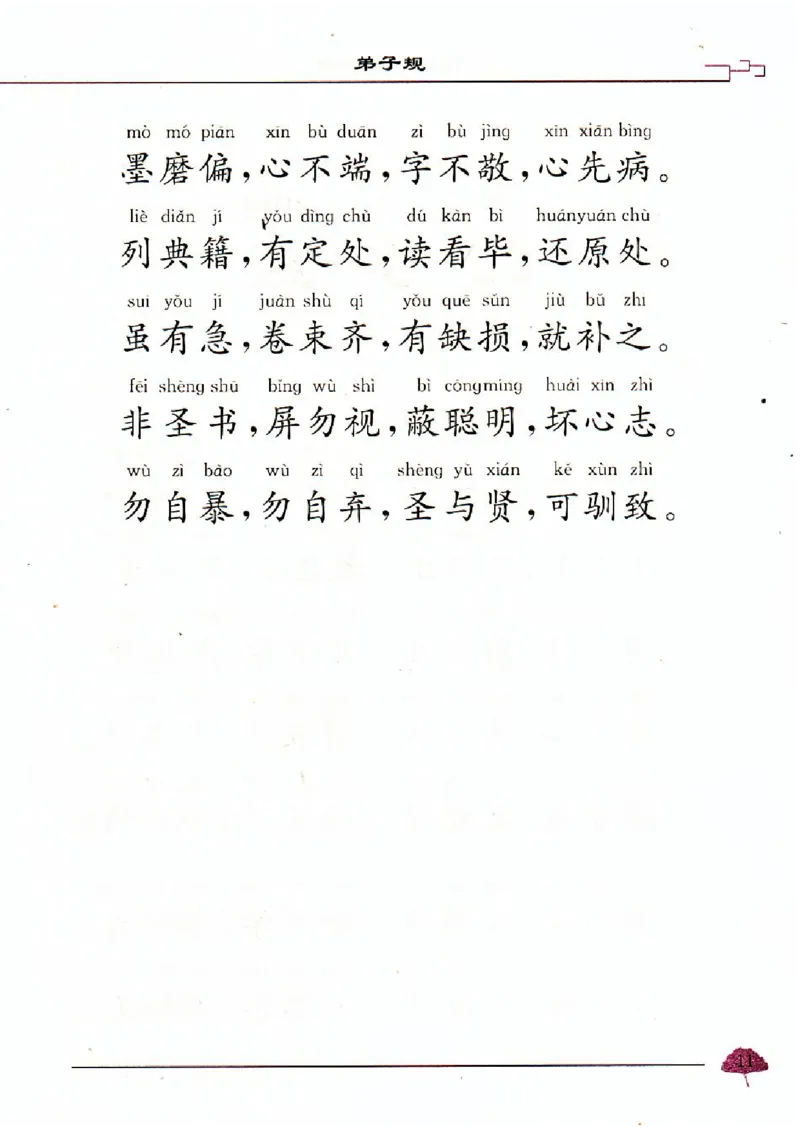 弟子规
mò mó piān xīn bù duān zì bù jìng xīn xiān bìng
墨磨偏，心不端，字不敬，心先病。
liè diǎn jí yǒu dìng chù dú kàn bì huányuán chù
列典籍，有定处，读看毕，还原处。
suī yǒu jí juàn shù qí yǒu quē sǔn jiù bǔ zhī
虽有急，卷束齐，有缺损，就补之。
fēi shèng shū bǐng wù shì bì cōngmíng huài xīn zhì
非圣书，屏勿视，蔽聪明，坏心志。
wù zì bào wù zì qì shèng yǔ xián kě xùn zhì
勿自暴，勿自弃，圣与贤，可驯致。
41